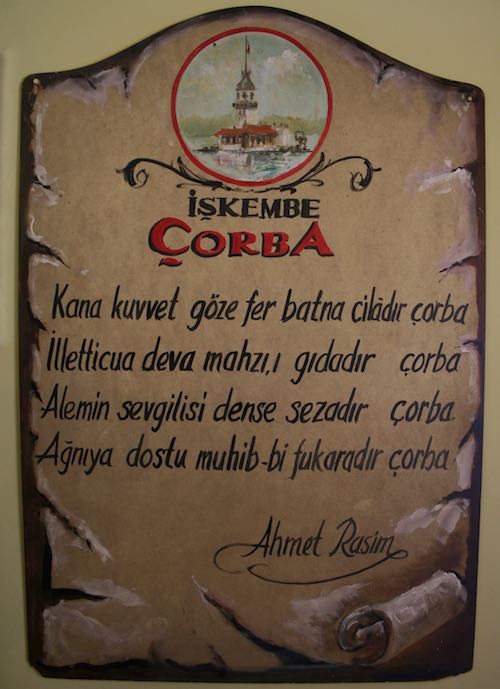 İŞKEMBE
ÇORBA
Kana kuvvet göze fer batna cilâdır çorba
İlletticua deva mahzı,ı gıdadır çorba
Alemin sevgilisi dense sezadır çorba
Ağnıya dostu muhib-bi fukaradır çorba
Ahmet Rasim